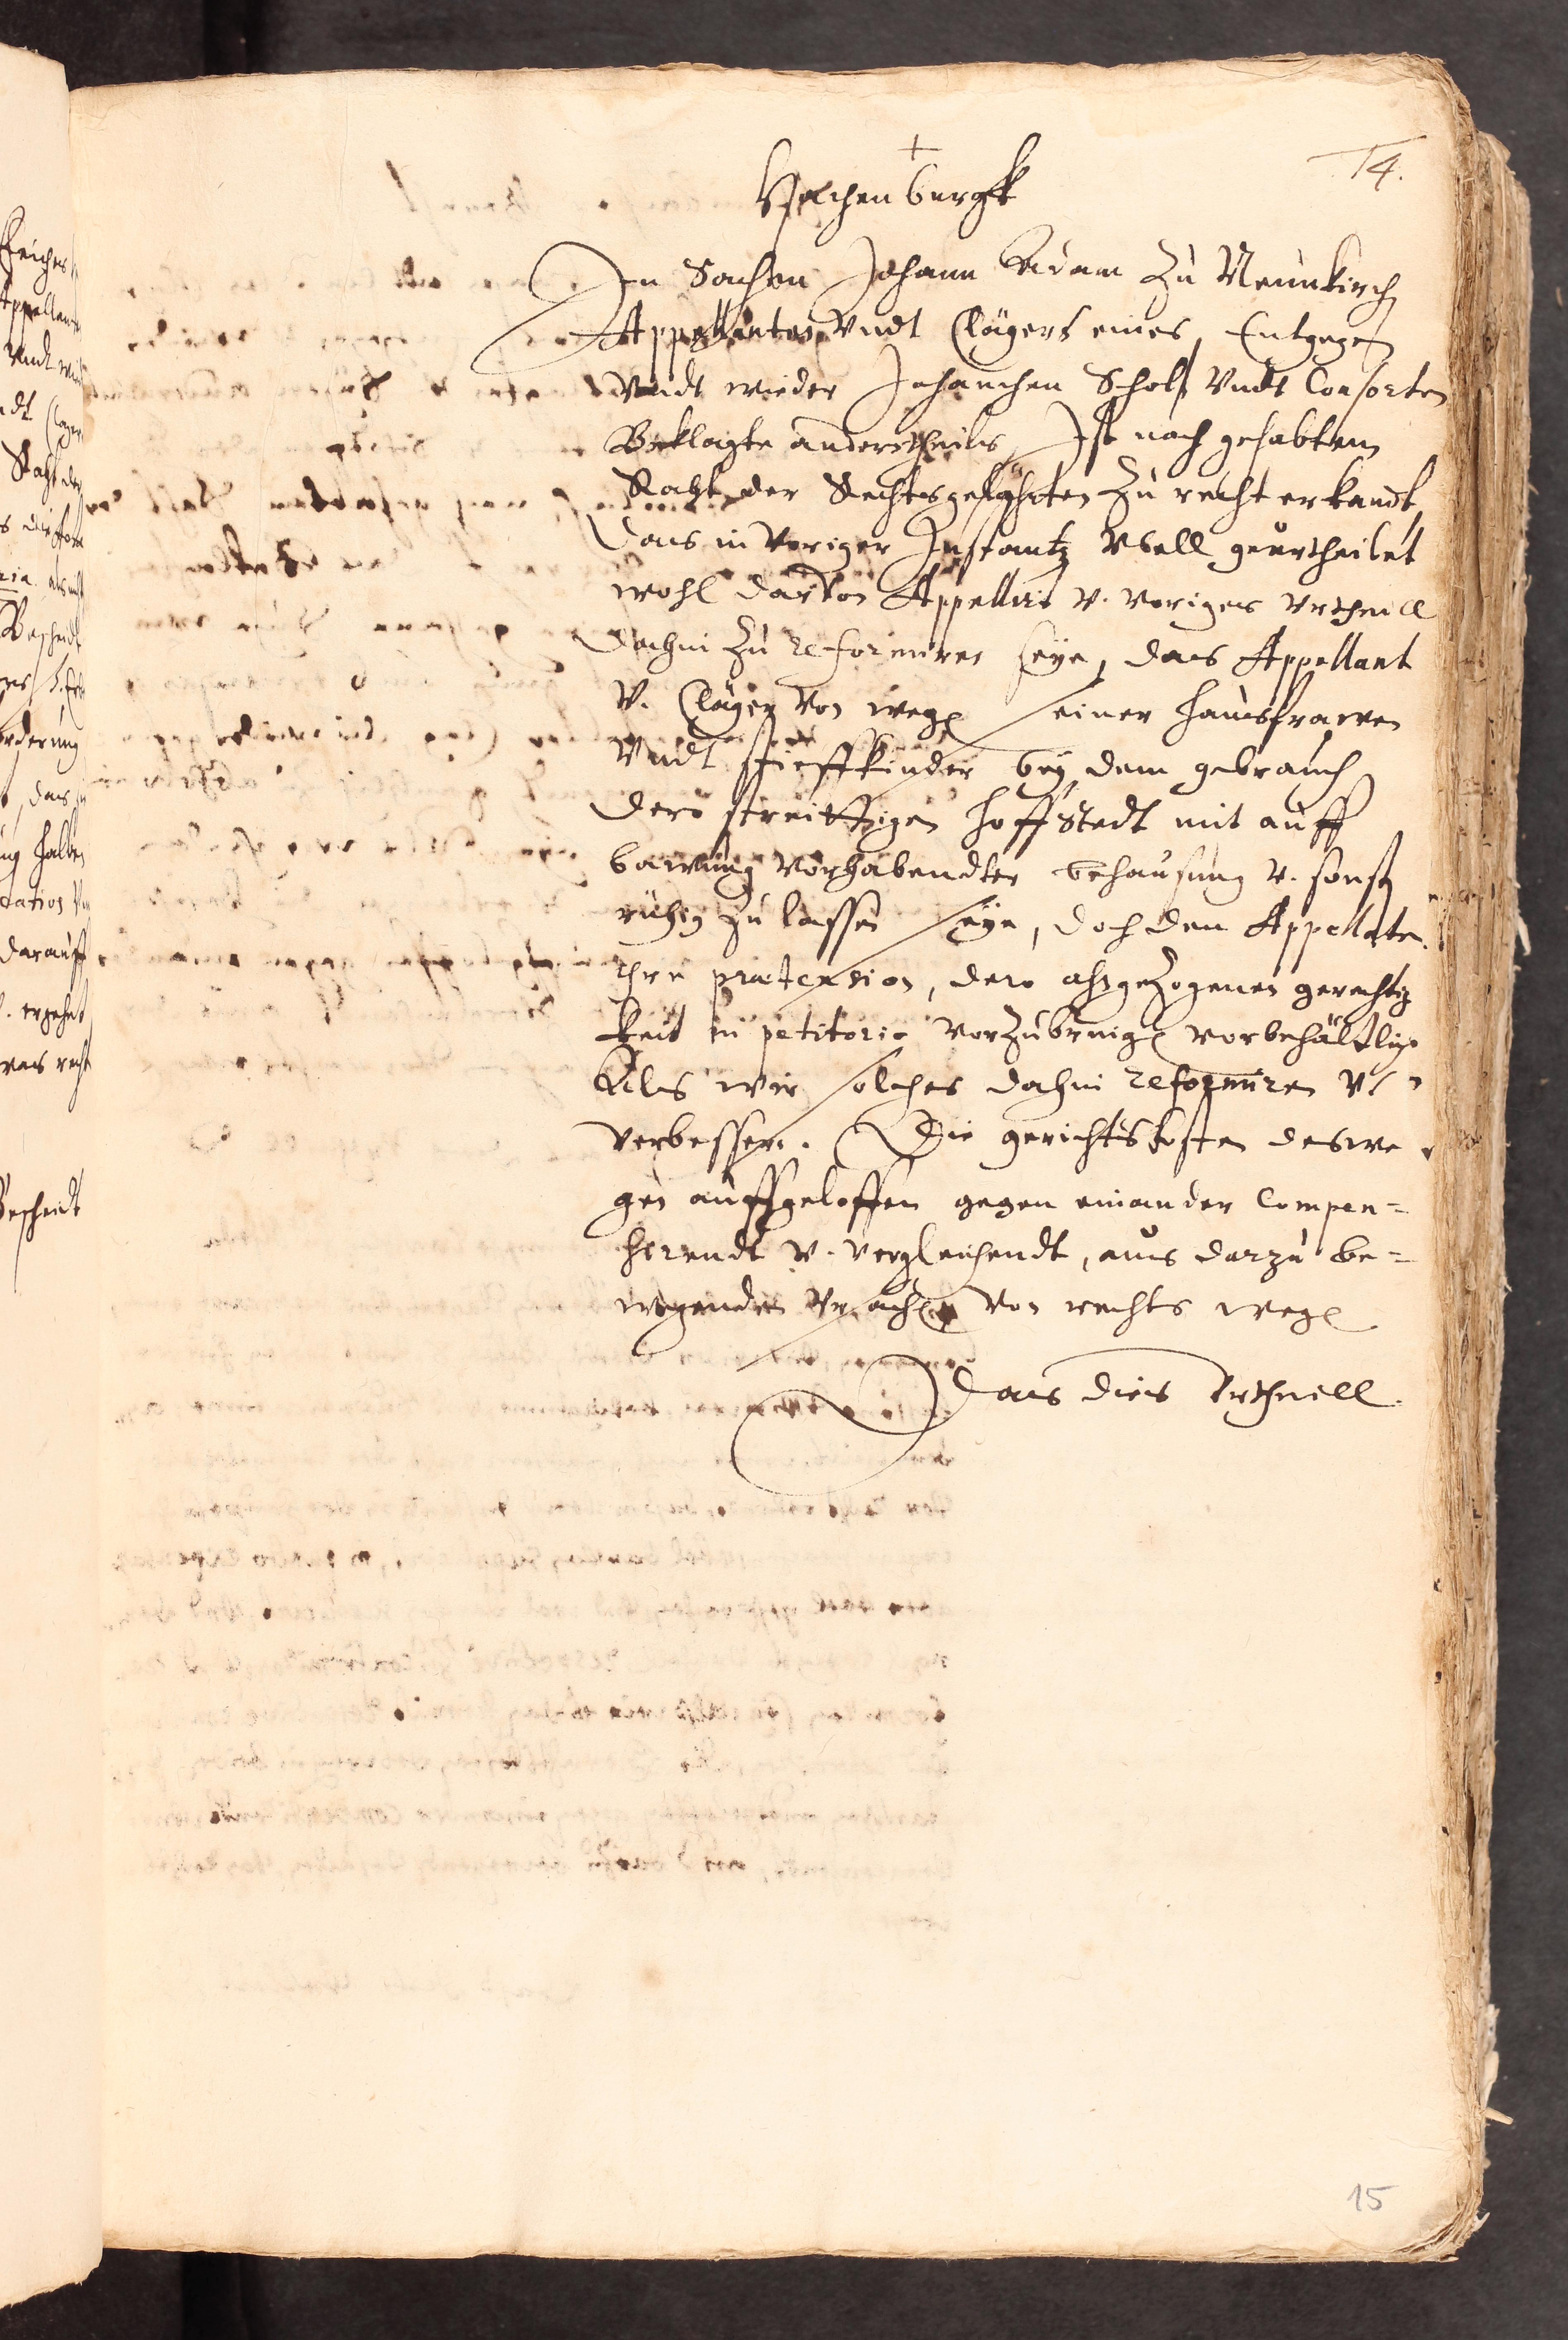 14.
Hachenburgk
In Sachen Johann Adam zu Neunkirch
Appellanten Vndt Clägers eines, Entgegen
Vndt wieder Johanchen Schol Vndt Consorten
Beklagte anderstheils, Ist nach gehabtem
Raht der Rechtsgelährten zu recht erkandt
Das in Voriger Instantz Vbell geurtheilet
wohl darvon Appellirt v. Voriges Vrtheill
dahin zu reformiren seye, das Appellant
v. Cläger von wegen seiner haussfrawen
Vndt stieffkinder bey dem gebrauch
dero streittigen hoffstedt mit auff
bawung vorhabendter behausung v. sonst
ruhig zu lassen seye, doch den Appellaten
ihre prætension, dero ahngezogenen gerechtig
keit in petitorio vorzubringen vorbehältlich
Als wir solches dahin reformiren v.
verbessern. Die gerichtskosten deswe
gen auffgeloffen gegen einander compen=
sirendt v. vergleichendt, aus darzu be=
wegenden Vrsachen Von rechts wegen
Das dies Vrtheill
15
Appellan
Vndt
Bescheidt
orderung
das
darauff
v. ergehet
was recht
Bescheidt